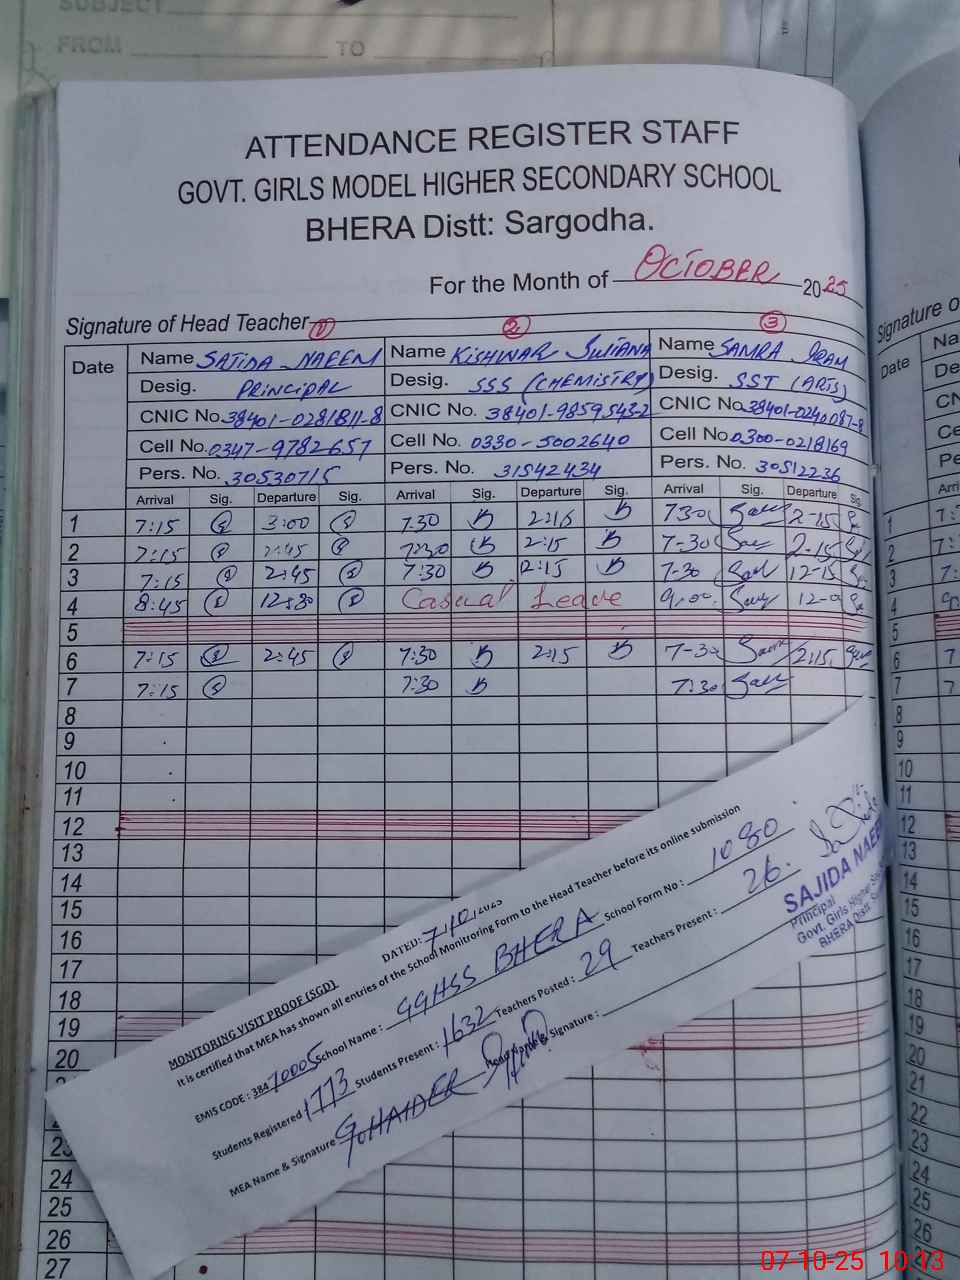 SUBJECT
FROM TO
ATTENDANCE REGISTER STAFF
GOVT. GIRLS MODEL HIGHER SECONDARY SCHOOL
BHERA Distt: Sargodha.
For the Month of OCTOBER 2025
Signature of Head Teacher 1 2 3
Date Name SAJIDA NAEEM Name KISHWAR SULTANA Name SAMRA IRAM
Desig. PRINCIPAL Desig. SSS (CHEMISTRY) Desig. SST (ARTS)
CNIC No. 38401-0281811-8 CNIC No. 38401-9859543-2 CNIC No. 38401-0240087-8
Cell No. 0347-9782657 Cell No. 0330-5002640 Cell No. 0300-0218169
Pers. No. 30530715 Pers. No. 31542434 Pers. No. 30512236
Arrival Sig. Departure Sig. Arrival Sig. Departure Sig. Arrival Sig. Departure Sig.
1 7:15 3:00 7:30 2:15 7:30 2-15
2 7:15 2:45 7:30 2:15 7-30 2-15
3 7:15 2:45 7:30 2:15 7-30 12-15
4 8:45 12:30 Casual Leave 9:00 12-0
5
6 7:15 2:45 7:30 2:15 7-30 2:15
7 7:15 7:30 7:30
8
9
10
11
12
13
14
15
16
17
18
19
20
23
24
25
26
27
MONITORING VISIT PROOF (SGD) DATED: 7/10/2025
It is certified that MEA has shown all entries of the School Monitring Form to the Head Teacher before its online submission
EMIS CODE : 38470005 School Name : GGHSS BHERA School Form No : 1080
Students Registered 1773 Students Present : 1632 Teachers Posted : 29 Teachers Present : 26
MEA Name & Signature G. HAIDER Signature :
SAJIDA NAEEM
Principal
Govt. Girls Higher
BHERA Distt.
Signature o
Date
1
2
3
4
5
6
7
8
9
10
11
12
13
14
15
16
17
18
19
20
21
22
23
24
25
26
07-10-25 10:13